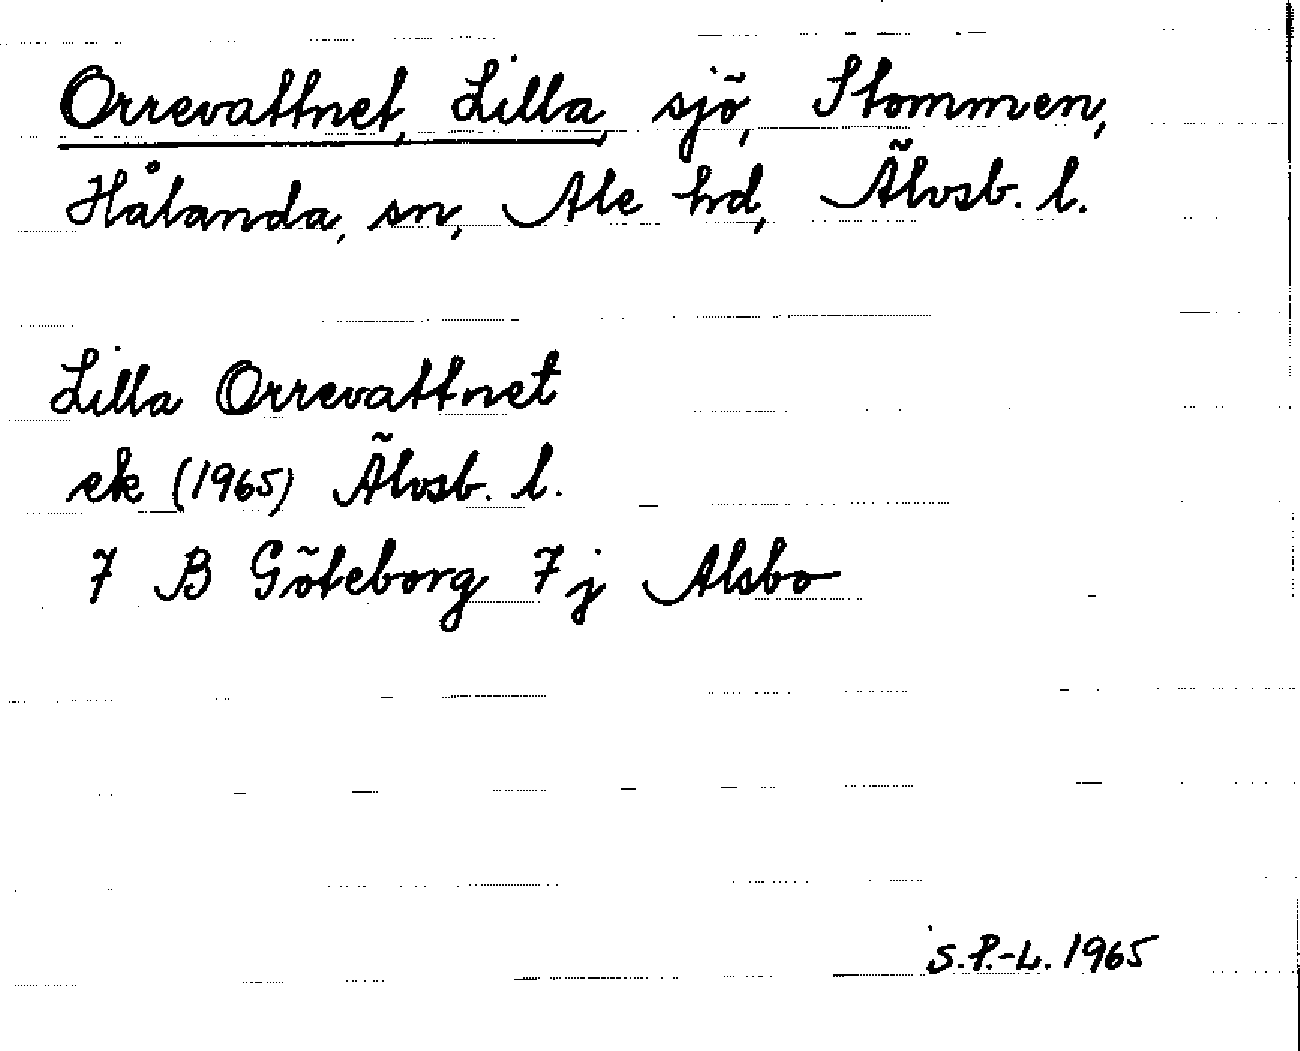 Orrevattnet, Lilla, sjö, Stommen,
Hålanda, sn, Ale hd, Älvsb. l.
Lilla Orrevattnet
ek (1965) Älvsb. l.
7 B Göteborg 7 j Alsbo
S.P.-L. 1965